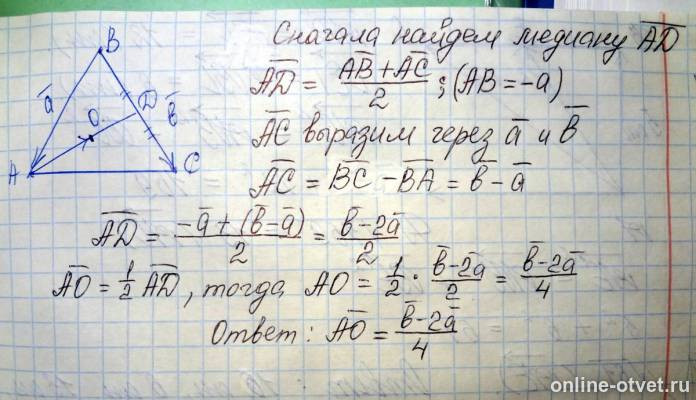 Сначала найдем медиану A̅D̅
A̅D̅ = (A̅B̅ + A̅C̅)/2 ; (AB = -a)
A̅C̅ выразим через a̅ и b̅
A̅C̅ = B̅C̅ - B̅A̅ = b̅ - a̅
A̅D̅ = (-a̅ + (b̅ - a̅))/2 = (b̅ - 2a̅)/2
A̅O̅ = 1/2 A̅D̅, тогда AO = 1/2 · (b̅ - 2a)/2 = (b̅ - 2a̅)/4
Ответ: A̅O̅ = (b̅ - 2a̅)/4
B
a̅
O
D
b̅
A
C
online-otvet.ru